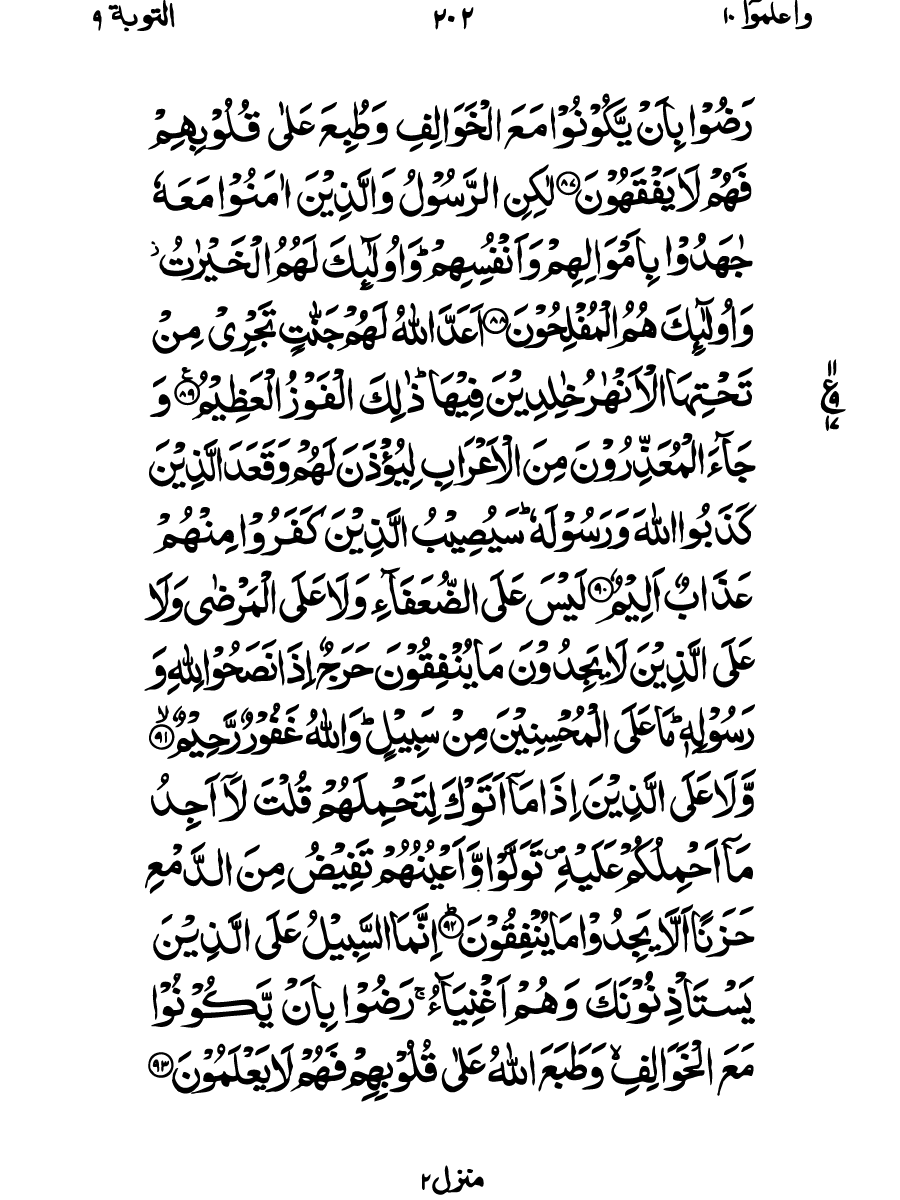 واعلموا ١٠ ٢٠٢ التوبة ٩
رَضُوْا بِاَنْ يَّكُوْنُوْا مَعَ الْخَوَالِفِ وَطُبِعَ عَلٰى قُلُوْبِهِمْ
فَهُمْ لَا يَفْقَهُوْنَ ﴿٨٧﴾ لٰكِنِ الرَّسُوْلُ وَالَّذِيْنَ اٰمَنُوْا مَعَهٗ
جٰهَدُوْا بِاَمْوَالِهِمْ وَاَنْفُسِهِمْ ؕ وَاُولٰٓئِكَ لَهُمُ الْخَيْرٰتُ ؗ
وَاُولٰٓئِكَ هُمُ الْمُفْلِحُوْنَ ﴿٨٨﴾ اَعَدَّ اللّٰهُ لَهُمْ جَنّٰتٍ تَجْرِيْ مِنْ
تَحْتِهَا الْاَنْهٰرُ خٰلِدِيْنَ فِيْهَا ؕ ذٰلِكَ الْفَوْزُ الْعَظِيْمُ ﴿٨٩﴾ وَ
١١
ع ٩
١٧
جَآءَ الْمُعَذِّرُوْنَ مِنَ الْاَعْرَابِ لِيُؤْذَنَ لَهُمْ وَقَعَدَ الَّذِيْنَ
كَذَبُوا اللّٰهَ وَرَسُوْلَهٗ ؕ سَيُصِيْبُ الَّذِيْنَ كَفَرُوْا مِنْهُمْ
عَذَابٌ اَلِيْمٌ ﴿٩٠﴾ لَيْسَ عَلَى الضُّعَفَآءِ وَلَا عَلَى الْمَرْضٰى وَلَا
عَلَى الَّذِيْنَ لَا يَجِدُوْنَ مَا يُنْفِقُوْنَ حَرَجٌ اِذَا نَصَحُوْا لِلّٰهِ وَ
رَسُوْلِهٖ ؕ مَا عَلَى الْمُحْسِنِيْنَ مِنْ سَبِيْلٍ ؕ وَاللّٰهُ غَفُوْرٌ رَّحِيْمٌ ۙ﴿٩١﴾
وَّلَا عَلَى الَّذِيْنَ اِذَا مَاۤ اَتَوْكَ لِتَحْمِلَهُمْ قُلْتَ لَاۤ اَجِدُ
مَاۤ اَحْمِلُكُمْ عَلَيْهِ ۪ تَوَلَّوْا وَّاَعْيُنُهُمْ تَفِيْضُ مِنَ الدَّمْعِ
حَزَنًا اَلَّا يَجِدُوْا مَا يُنْفِقُوْنَ ؕ﴿٩٢﴾ اِنَّمَا السَّبِيْلُ عَلَى الَّذِيْنَ
يَسْتَاْذِنُوْنَكَ وَهُمْ اَغْنِيَآءُ ۚ رَضُوْا بِاَنْ يَّكُوْنُوْا
مَعَ الْخَوَالِفِ ۙ وَطَبَعَ اللّٰهُ عَلٰى قُلُوْبِهِمْ فَهُمْ لَا يَعْلَمُوْنَ ﴿٩٣﴾
منزل ٢